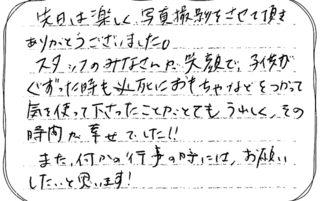 先日は楽しく、写真撮影をさせて頂き
ありがとうございました。
スタッフのみなさんが笑顔で、子供が
ぐずった時も必死におもちゃなどをつかって
気を使って下さったことがとてもうれしく、その
時間が幸せでした!!
また、何かの行事の時には、お願い
したいと思います!